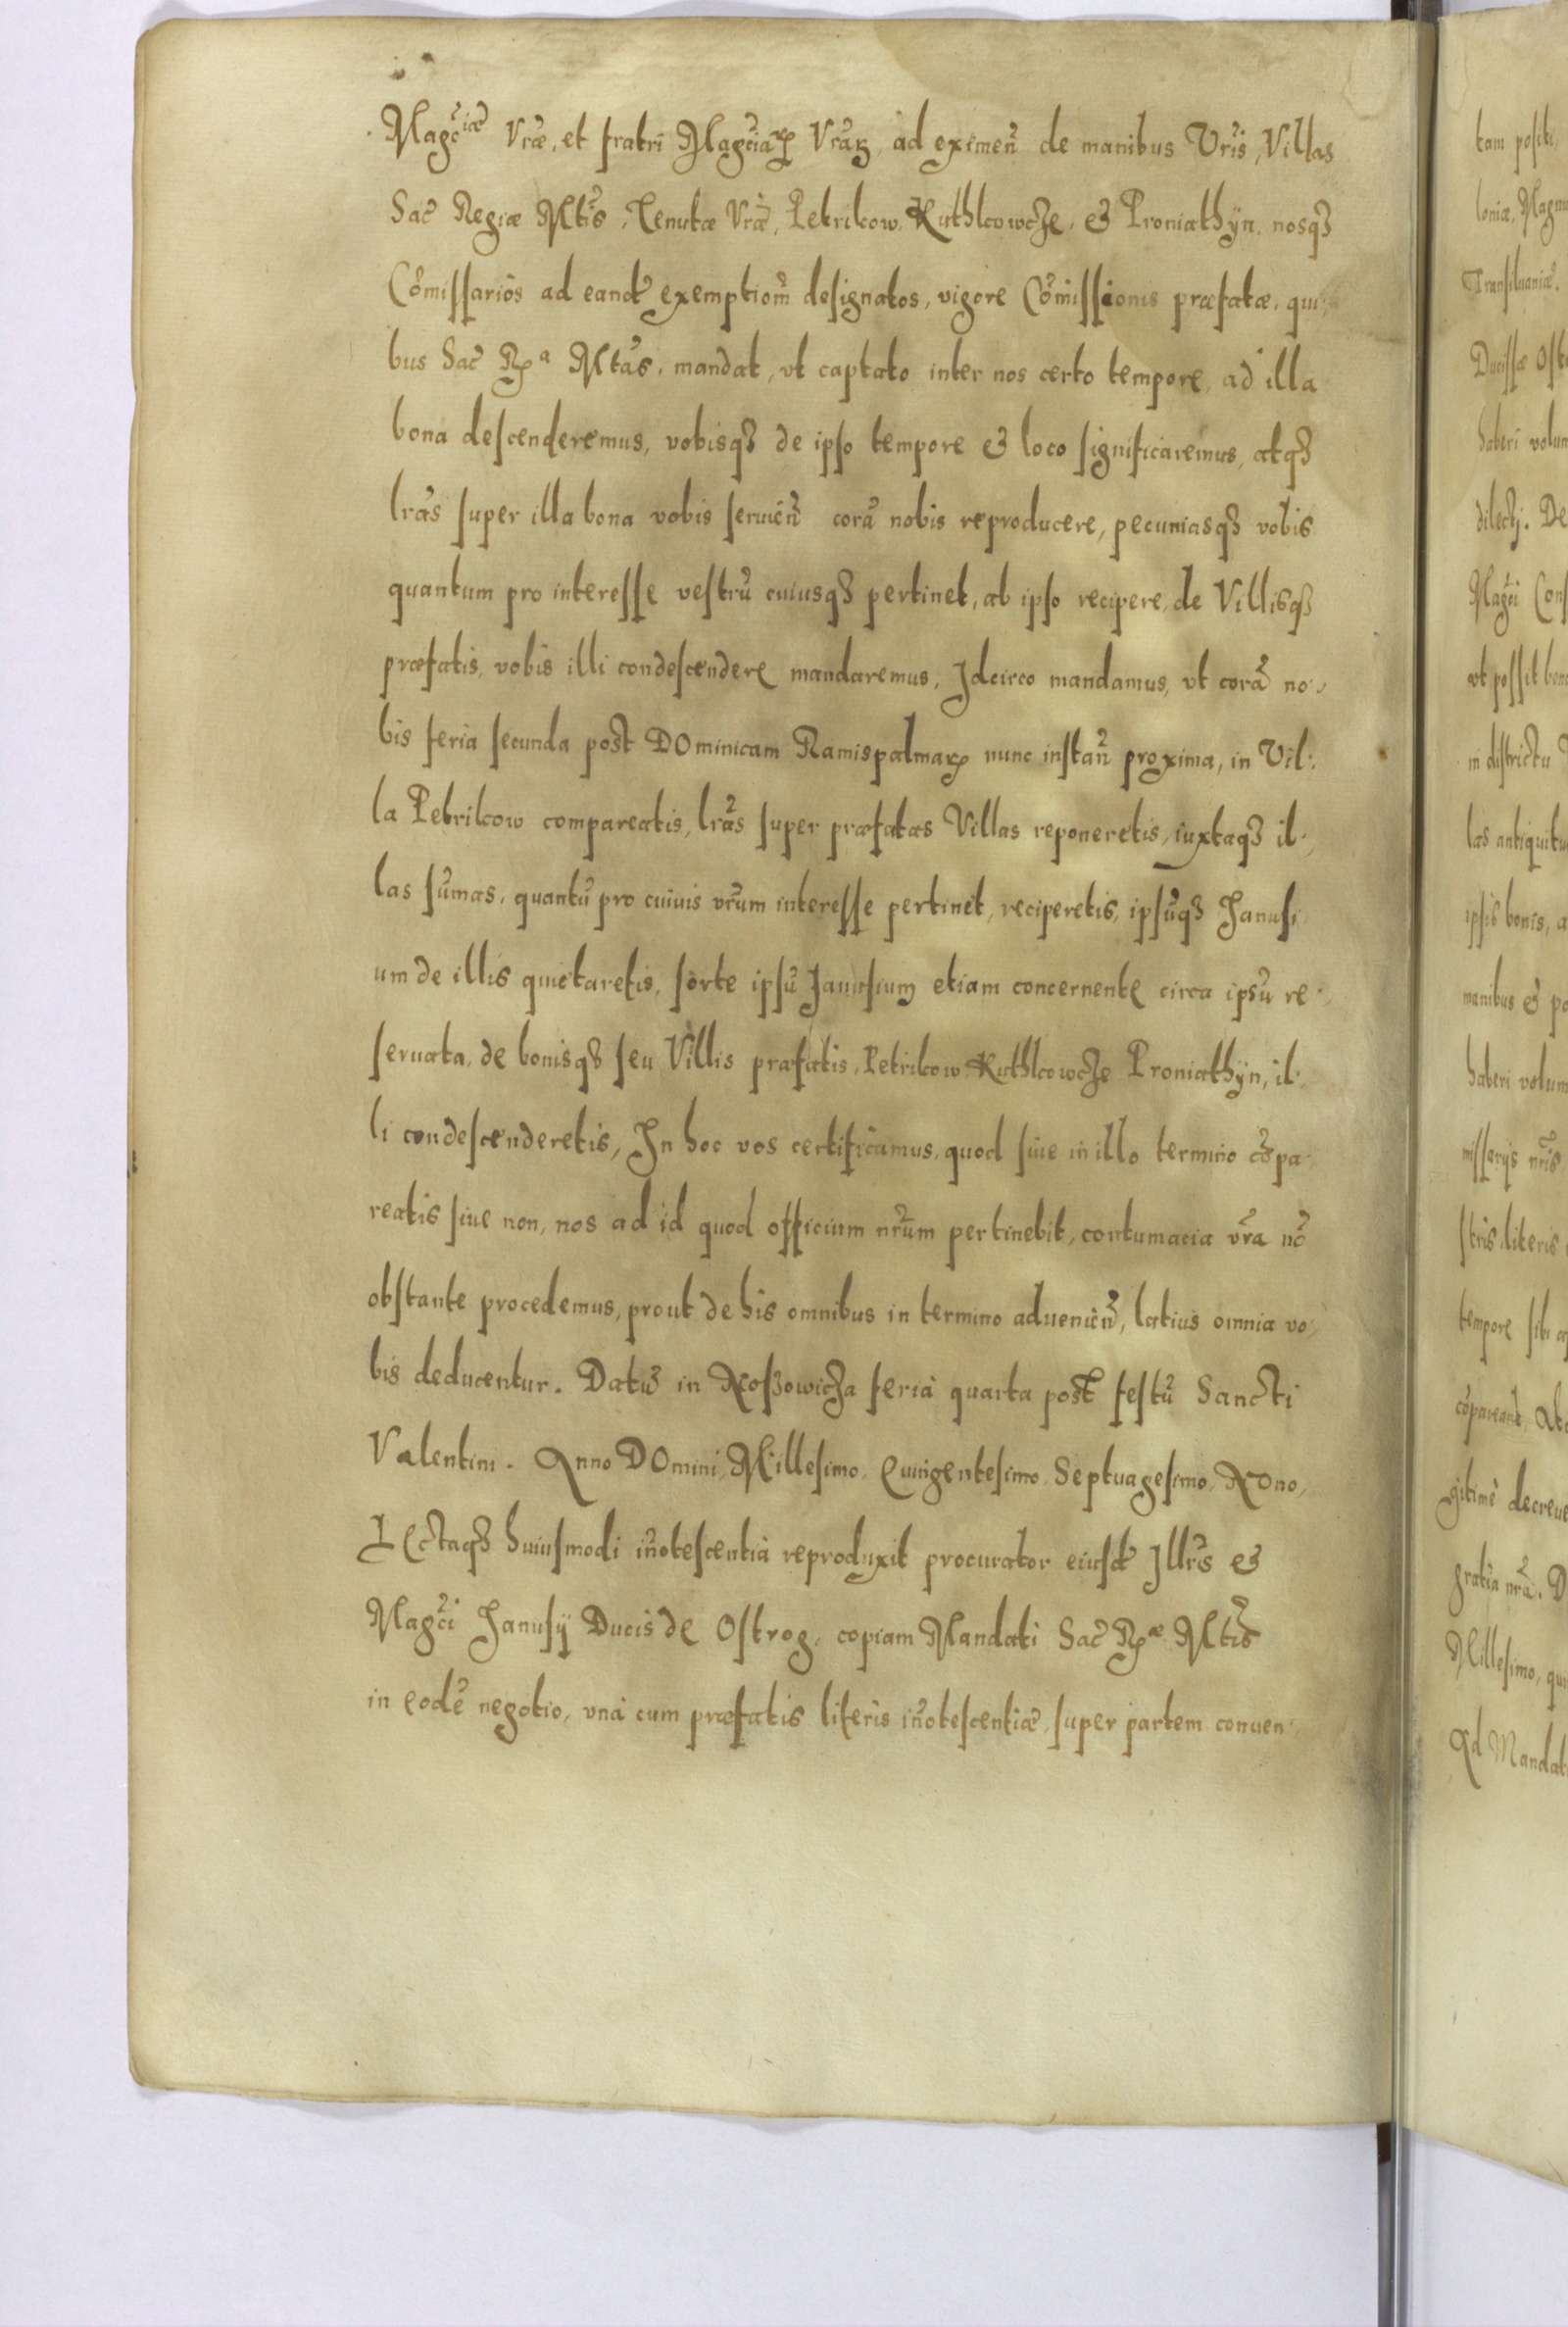 Magc̃iæ Vræ̃, et fratri Magc̃iaꝝ Vrãꝝ, ad eximeñ de manibus Vr̃is, Villas
Sac̃ Regiæ Mtĩs, Tenutæ Vræ̃, Petrikow, Kuthkowcze, & Proniathÿn, nosqꝫ
Com̃issarios ad eand̃ exemptiom̃ designatos, vigore Com̃issionis præfatæ, qui
bus Sac̃ Rꝫa Mtãs, mandat, vt captato inter nos certo tempore, ad illa
bona descenderemus, vobisqꝫ de ipso tempore & loco significaremus, atqꝫ
lrãs super illa bona vobis seruieñ corã nobis reproducere, pecuniasqꝫ vobis
quantum pro interesse vestrũ cuiusqꝫ pertinet, ab ipso recipere, de Villisqꝫ
præfatis, vobis illi condescendere mandaremus, Idcirco mandamus, vt corã no
bis feria secunda post DOminicam Ramispalmaꝝ nunc instañ proxima, in Vil
la Petrikow compareatis, lrãs super præfatas Villas reponeretis, iuxtaqꝫ il
las sum̃as, quantũ pro cuiuis vrũm interesse pertinet, reciperetis, ipsũqꝫ Janusi
um de illis quietaretis, sorte ipsũ Janusium etiam concernente circa ipsũ re
seruata, de bonisqꝫ seu Villis præfatis, Petrikow Kuthkowcze Proniathÿn, il
li condescenderetis, In hoc vos certificamus, quod siue in illo termino cõpa
reatis siue non, nos ad id quod officium nrũm pertinebit, contumacia vrã nõ
obstante procedemus, prout de his omnibus in termino advenieñ, latius omnia vo
bis deducentur. Datũ in feria quarta post festũ Sancti
Valentini. Anno DOmini, Millesimo, Quingentesimo, Septuagesimo, Nono,
LEctaqꝫ huiusmodi iñotescentia reproduxit procurator eiusd̃ Illrĩs &
Magc̃i Janusÿ Ducis de Ostrog, copiam Mandati Sac̃ Rꝫæ Mtĩs
in eodẽ negotio, vna cum præfatis literis iñotescentiæ, super partem conuen
tam posit
loniæ, Magnu
Transiluaniæ.
Ducissæ Ost
haberi volum
dilectj. De
Magc̃i Cons
vt possit bon
in districtu
las antiquitu
ipsis bonis, a
manibus & po
haberi volum
missarijs nrĩs
stris, literis
tempore sibi
cõpareant,
gitimè decreue
gratia nrã. D
Millesimo, qui
Ad Mandat